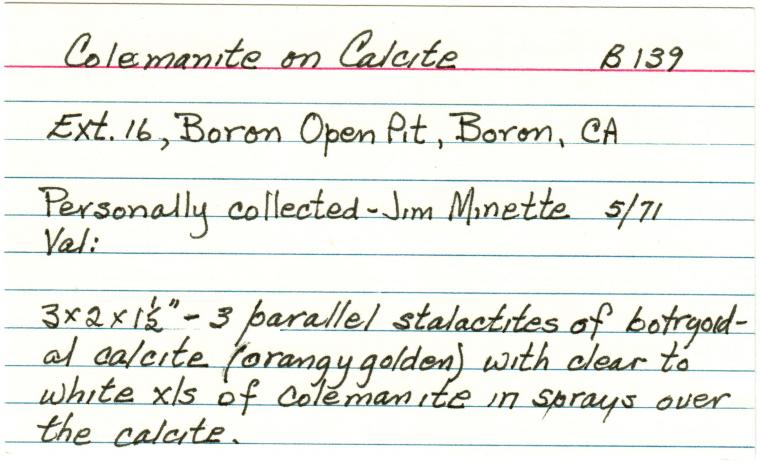 Colemanite on Calcite B139
Ext. 16, Boron Open Pit, Boron, CA
Personally collected - Jim Minette 5/71
Val:
3x2x1½" - 3 parallel stalactites of botryoid-
al calcite (orangy golden) with clear to
white xls of colemanite in sprays over
the calcite.